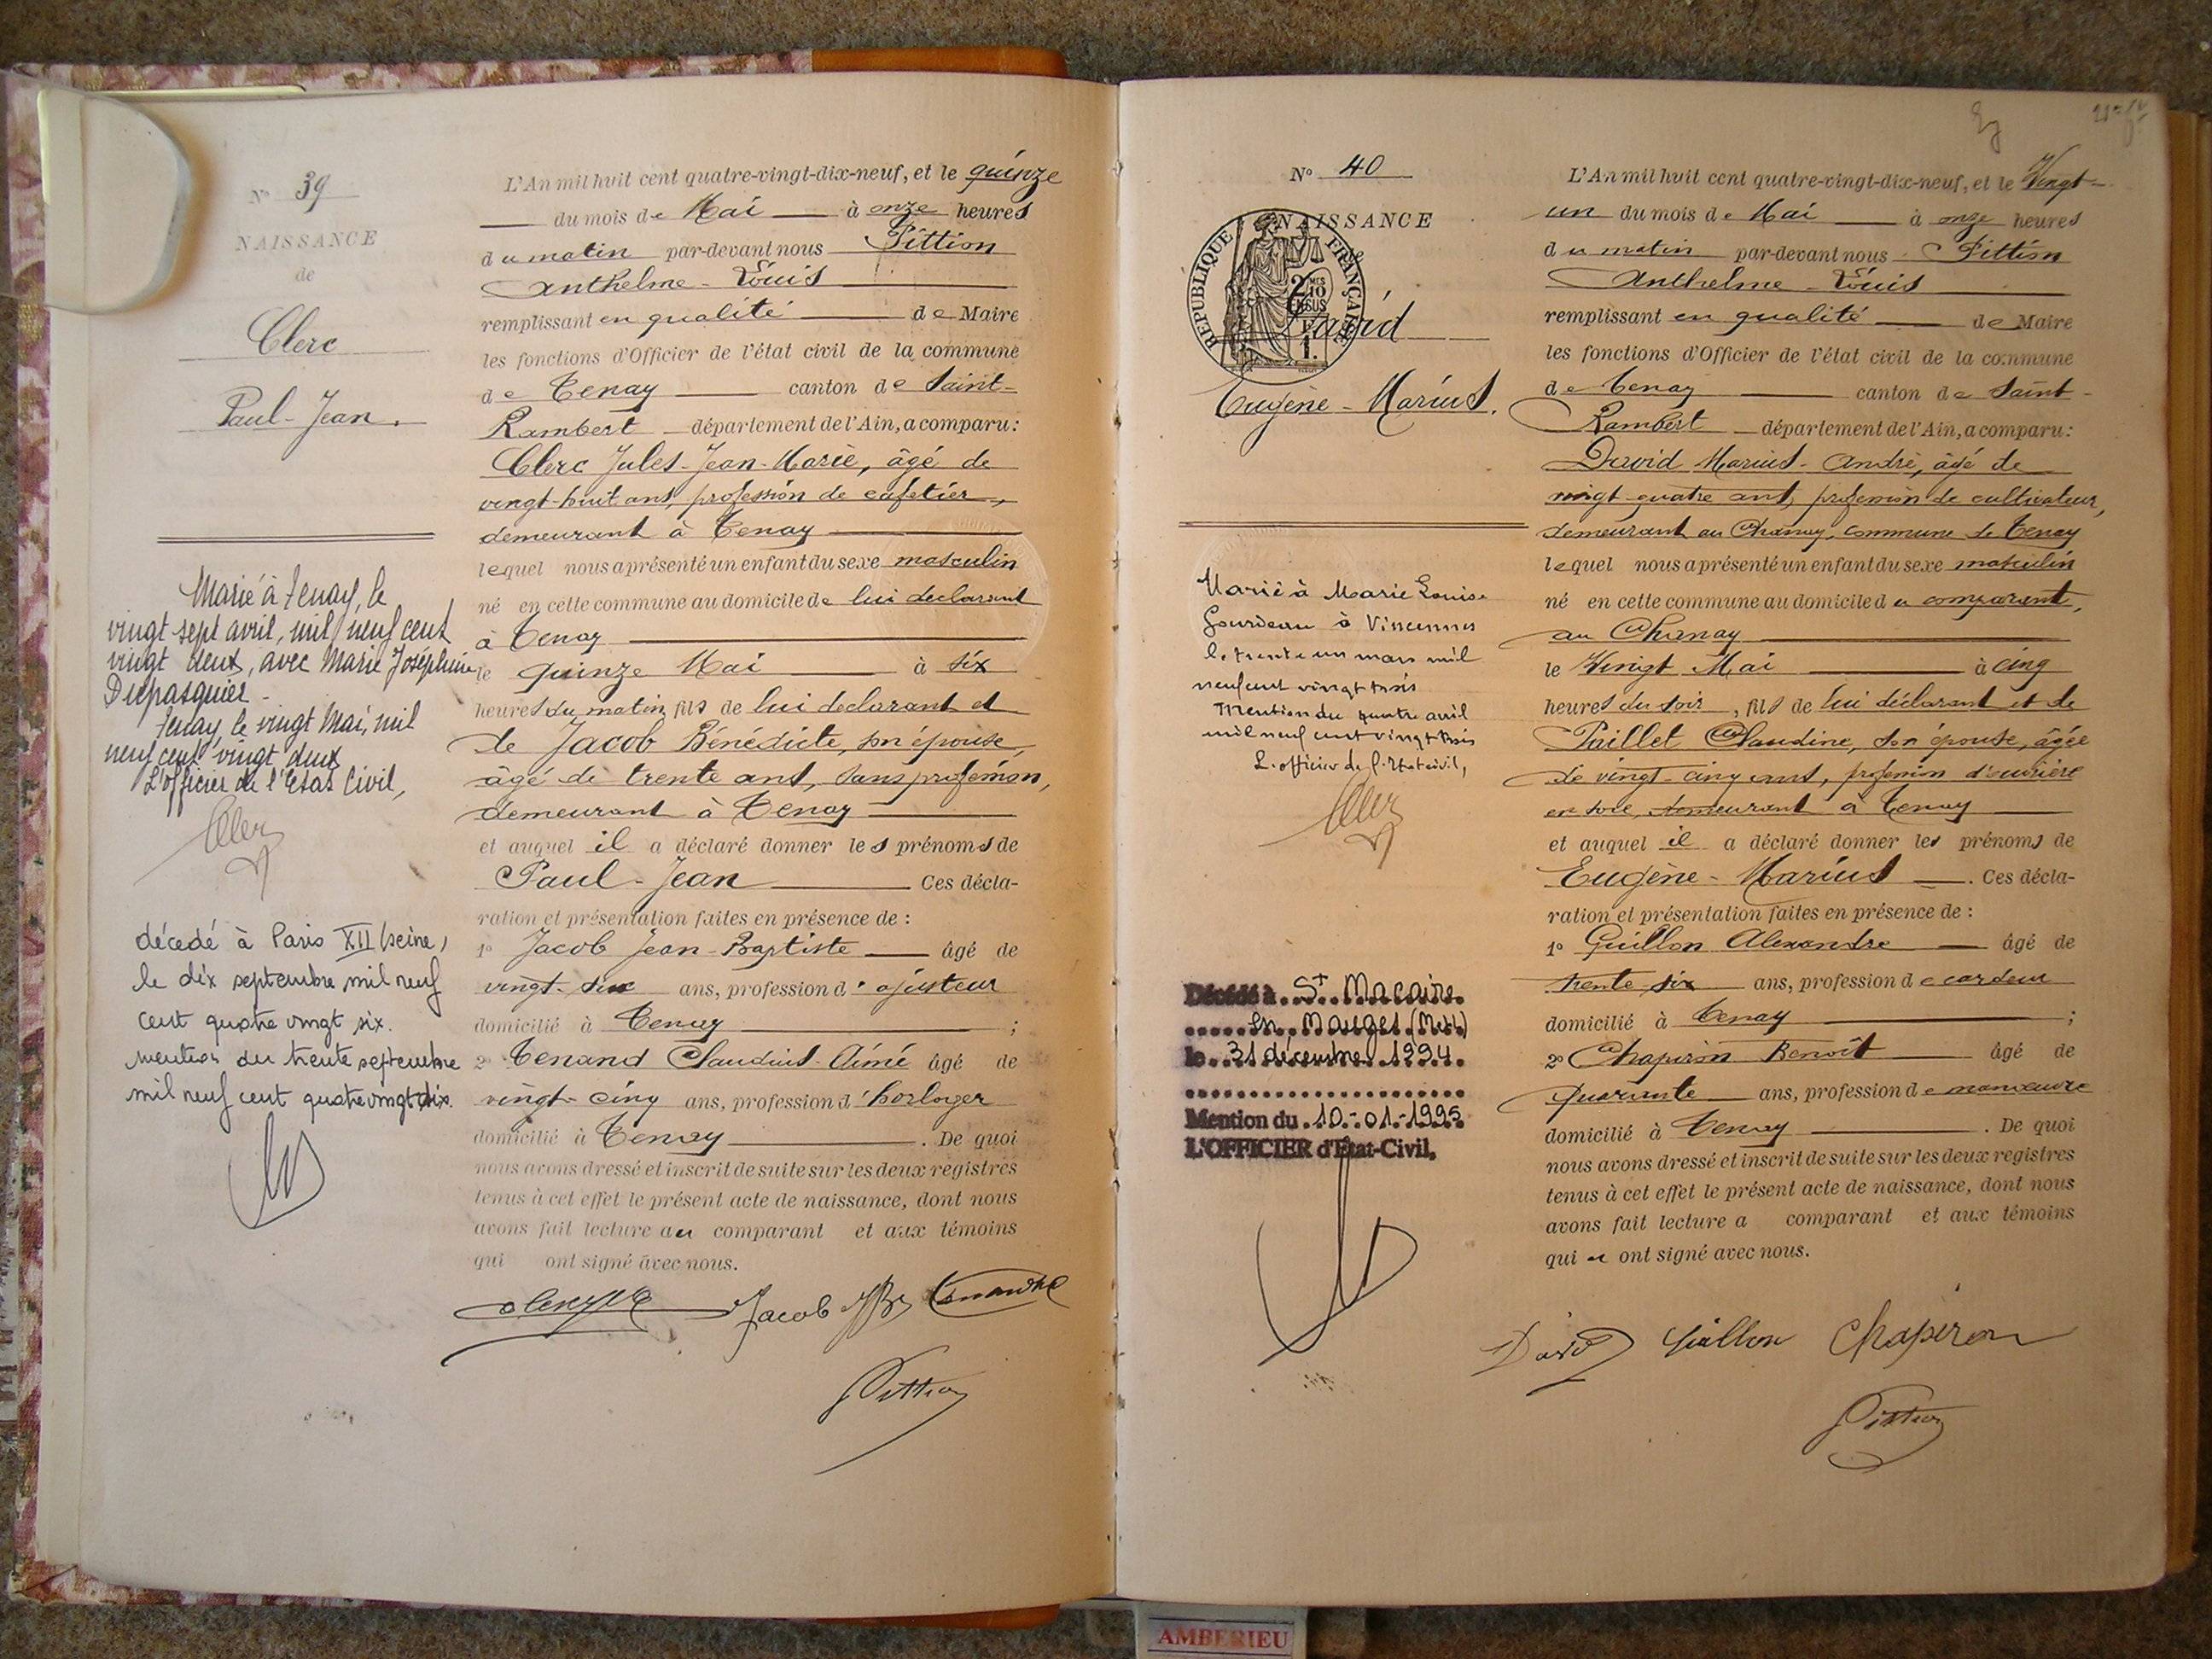 N° 39
NAISSANCE
de
Clerc
Paul-Jean.
Marié à Tenay, le
vingt sept avril, mil neuf cent
vingt deux, avec Marie Joséphine
Dupasquier -
Tenay, le vingt Mai, mil
neuf cent vingt deux
L'officier de l'Etat Civil,
décedé à Paris XII (seine)
le dix septembre mil neuf
cent quatre vingt six.
mention du trente septembre
mil neuf cent quatre vingt dix.
L'An mil huit cent quatre-vingt-dix-neuf, et le quinze
du mois de Mai à onze heures
du matin par-devant nous Pittion
Anthelme - Louis
remplissant en qualité de Maire
les fonctions d'Officier de l'état civil de la commune
de Tenay canton de Saint-
Rambert département de l'Ain, a comparu :
Clerc Jules-Jean-Marie, âgé de
vingt-huit ans, profession de cafetier,
demeurant à Tenay
lequel nous a présenté un enfant du sexe masculin
né en cette commune au domicile de lui declarant
à Tenay
le quinze Mai à six
heures du matin, fils de lui declarant et
de Jacob Bénédicte, son épouse,
âgé de trente ans, sans profession,
demeurant à Tenay
et auquel il a déclaré donner les prénoms de
Paul-Jean Ces décla-
ration et présentation faites en présence de :
1° Jacob Jean-Baptiste âgé de
vingt-six ans, profession d' ajusteur
domicilié à Tenay ;
2° Tenand Claudius-Aimé âgé de
vingt-cinq ans, profession d'horloger
domicilié à Tenay . De quoi
nous avons dressé et inscrit de suite sur les deux registres
tenus à cet effet le présent acte de naissance, dont nous
avons fait lecture au comparant et aux témoins
qui ont signé avec nous.
Jacob JB Tenand
Pittion
N° 40
NAISSANCE
REPUBLIQUE FRANÇAISE
David
Eugène - Marius.
Marié à Marie Louise
Gourdeau à Vincennes
le trente un mars mil
neuf cent vingt trois
Mention du quatre avril
mil neuf cent vingt trois
L'officier de l'Etat civil,
Décédé à St Macaire
en Mauges (M&L)
le 31 décembre 1994.
Mention du 10-01-1995
L'OFFICIER d'État-Civil,
L'An mil huit cent quatre-vingt-dix-neuf, et le Vingt-
un du mois de Mai à onze heures
du matin par-devant nous Pittion
Anthelme - Louis
remplissant en qualité de Maire
les fonctions d'Officier de l'état civil de la commune
de Tenay canton de Saint-
Rambert département de l'Ain, a comparu :
David Marius-André, âgé de
vingt-quatre ans, profession de cultivateur,
demeurant au Chanay, commune de Tenay
lequel nous a présenté un enfant du sexe masculin
né en cette commune au domicile du comparant,
au Chanay
le Vingt Mai à cinq
heures du soir, fils de lui déclarant et de
Paillet Claudine, son épouse, âgée
de vingt-cinq ans, profession d'ouvrière
en soie, demeurant à Tenay
et auquel il a déclaré donner les prénoms de
Eugène - Marius . Ces décla-
ration et présentation faites en présence de :
1° Guillon Alexandre âgé de
trente-six ans, profession de cardeur
domicilié à Tenay ;
2° Chapiron Benoît âgé de
quarante ans, profession de manœuvre
domicilié à Tenay . De quoi
nous avons dressé et inscrit de suite sur les deux registres
tenus à cet effet le présent acte de naissance, dont nous
avons fait lecture a comparant et aux témoins
qui ont signé avec nous.
David Guillon Chapiron
Pittion
AMBERIEU